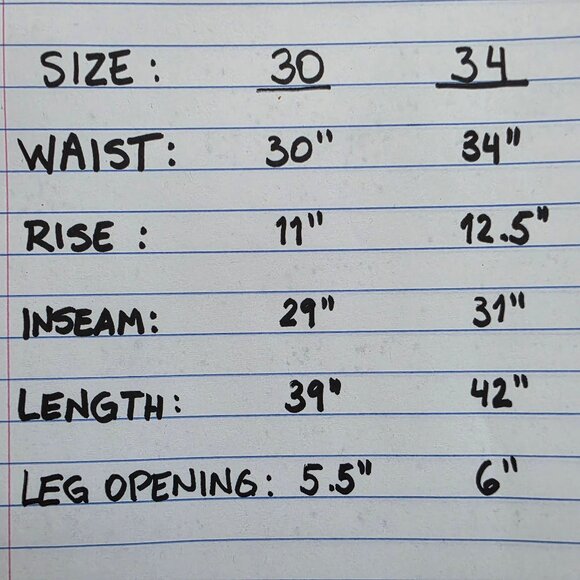 SIZE: 30 34
WAIST: 30" 34"
RISE: 11" 12.5"
INSEAM: 29" 31"
LENGTH: 39" 42"
LEG OPENING: 5.5" 6"